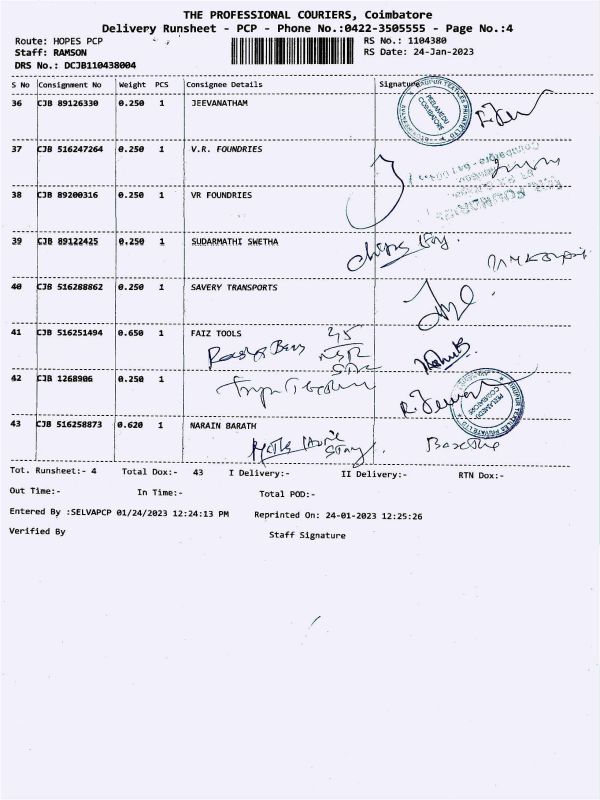 THE PROFESSIONAL COURIERS, Coimbatore
Delivery Runsheet - PCP - Phone No.:0422-3505555 - Page No.:4
Route: HOPES PCP RS No.: 1104380
Staff: RAMSON RS Date: 24-Jan-2023
DRS No.: DCJB110438004
S No Consignment No Weight PCS Consignee Details Signature
36 CJB 89126330 0.250 1 JEEVANATHAM
PEELAMEDU
COIMBATORE
37 CJB 516247264 0.250 1 V.R. FOUNDRIES
38 CJB 89200316 0.250 1 VR FOUNDRIES
39 CJB 89122425 0.250 1 SUDARMATHI SWETHA
40 CJB 516288862 0.250 1 SAVERY TRANSPORTS
41 CJB 516251494 0.650 1 FAIZ TOOLS
42 CJB 1268906 0.250 1
PEELAMEDU
COIMBATORE
43 CJB 516258873 0.620 1 NARAIN BARATH
Tot. Runsheet:- 4 Total Dox:- 43 I Delivery:- II Delivery:- RTN Dox:-
Out Time:- In Time:- Total POD:-
Entered By :SELVAPCP 01/24/2023 12:24:13 PM Reprinted On: 24-01-2023 12:25:26
Verified By Staff Signature